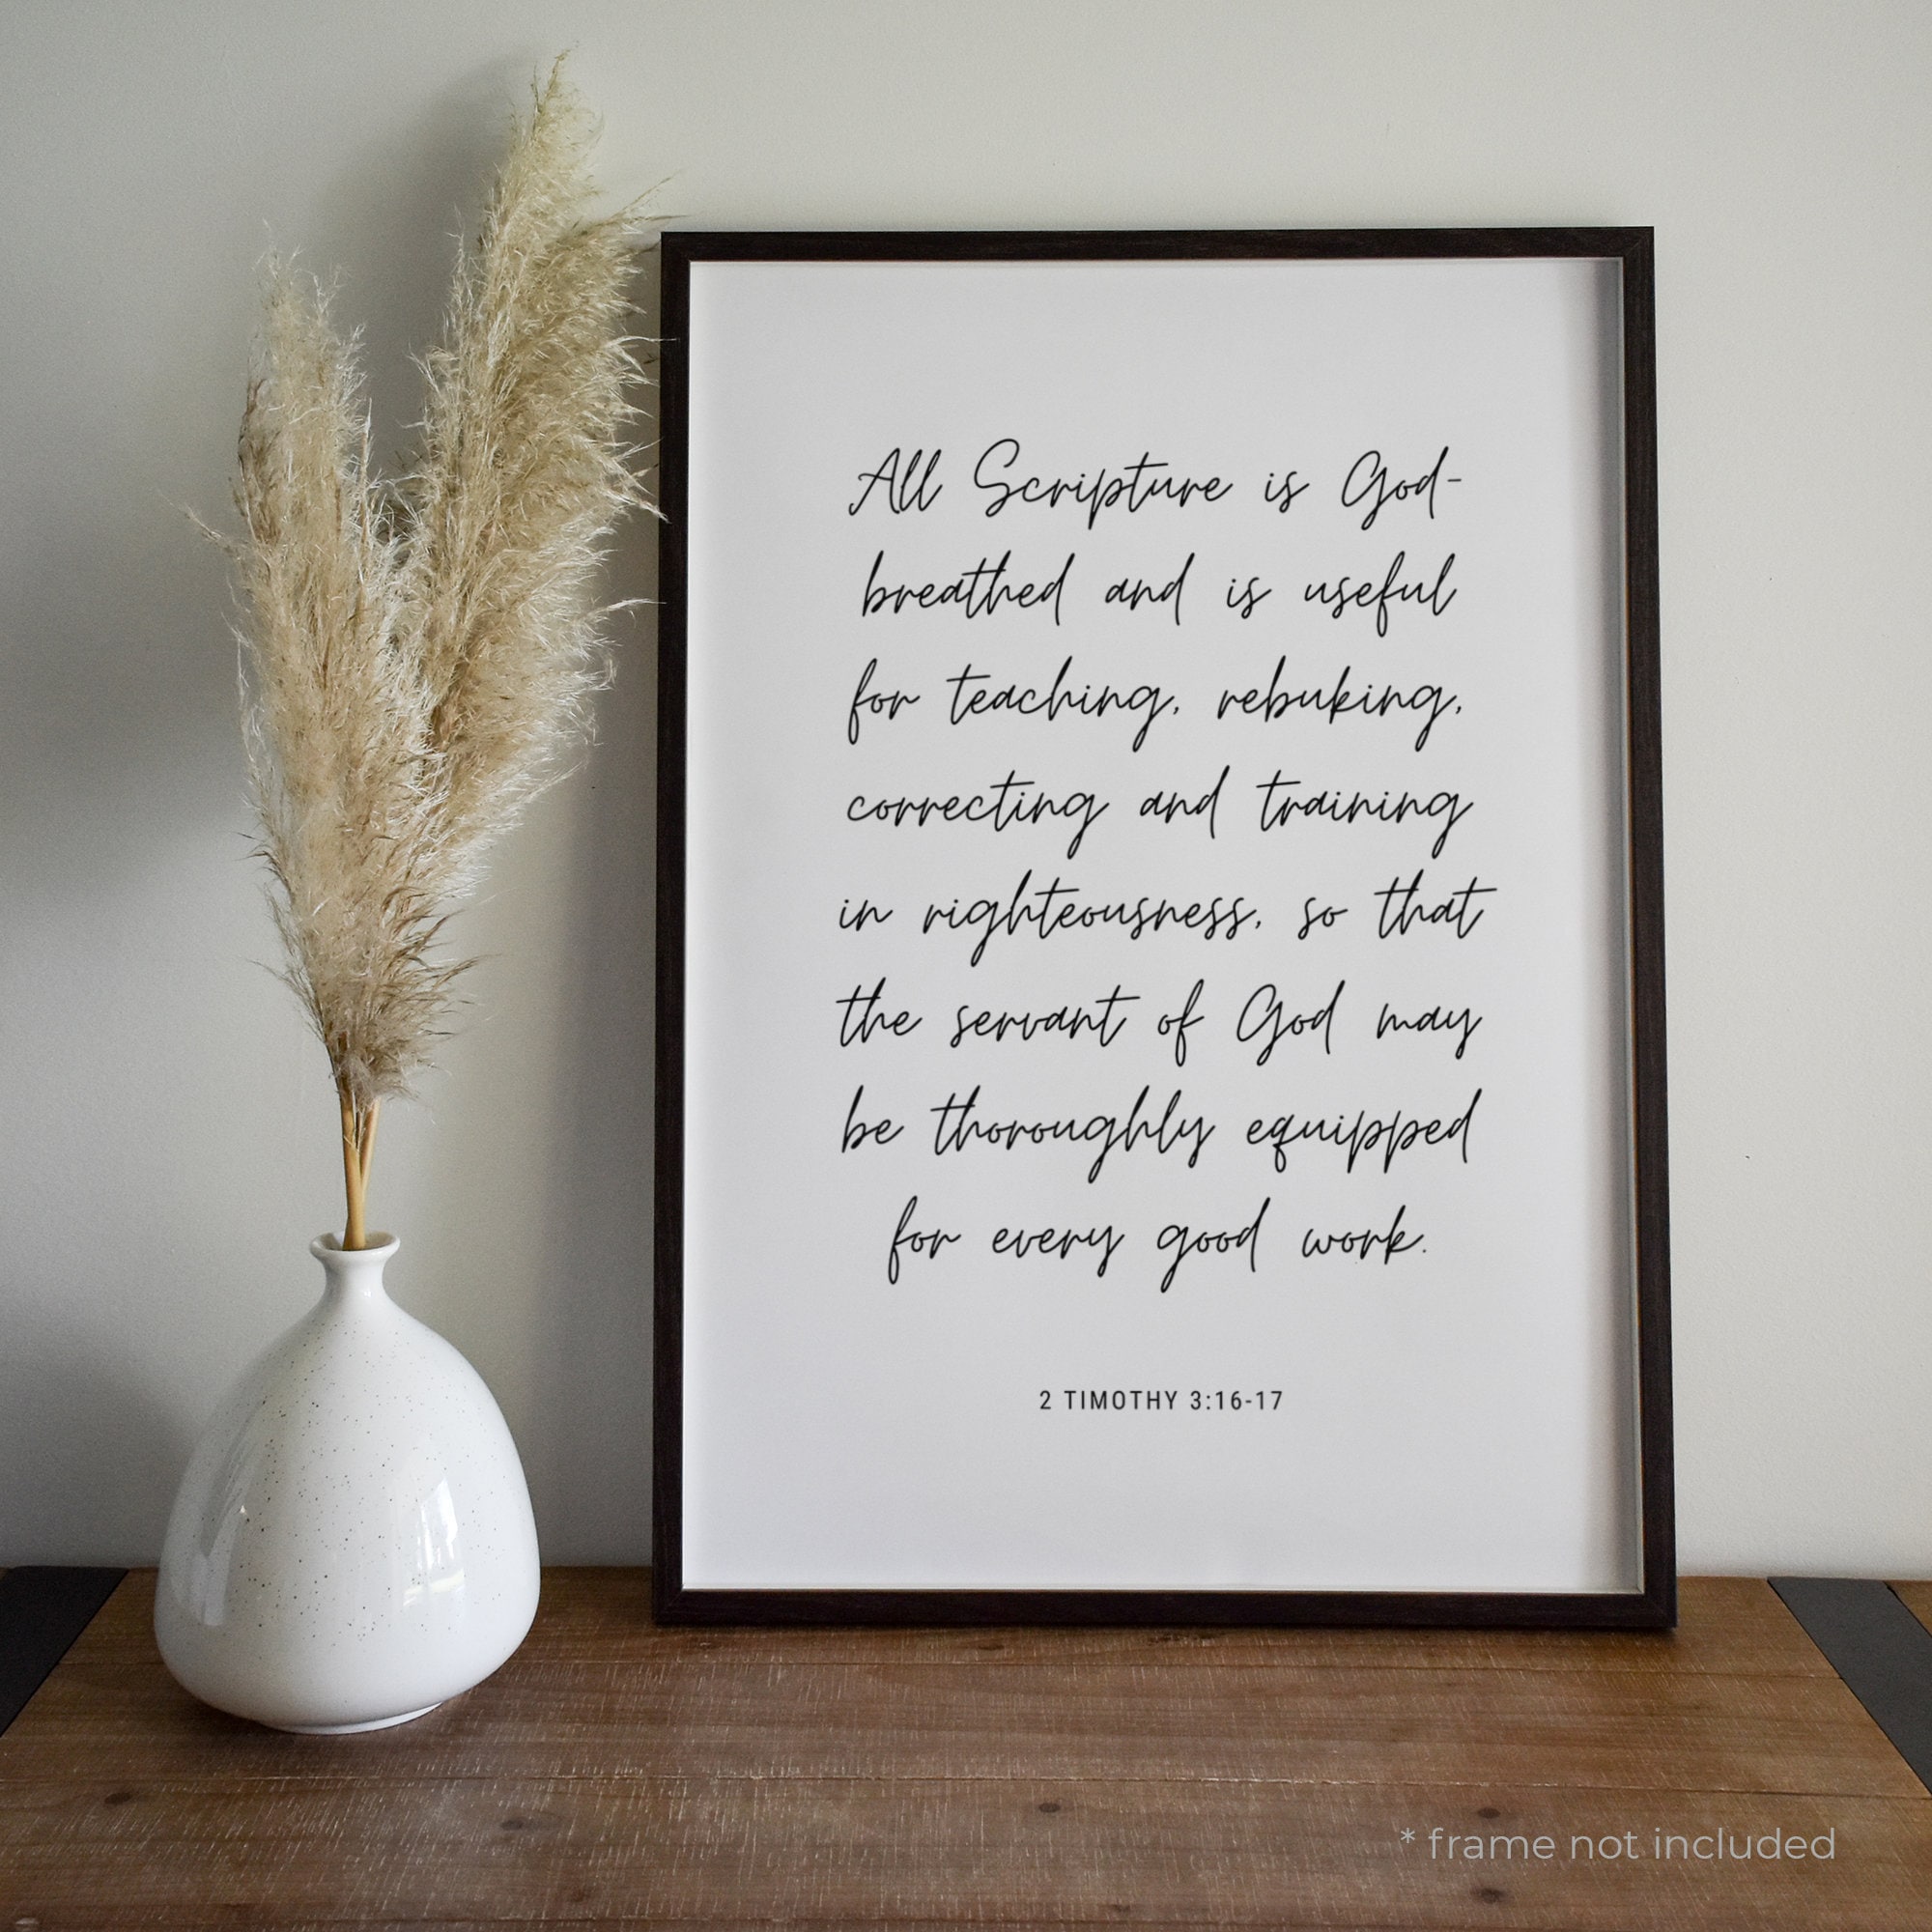 All Scripture is God-
breathed and is useful
for teaching, rebuking,
correcting and training
in righteousness, so that
the servant of God may
be thoroughly equipped
for every good work.
2 TIMOTHY 3:16-17
* frame not included